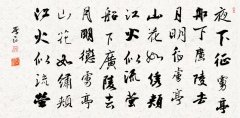 夜下征虜亭
船下廣陵去
月明征虜亭
山花如繡頰
江火似流螢
船下廣陵去
月明征虜亭
山花如繡頰
江火似流螢